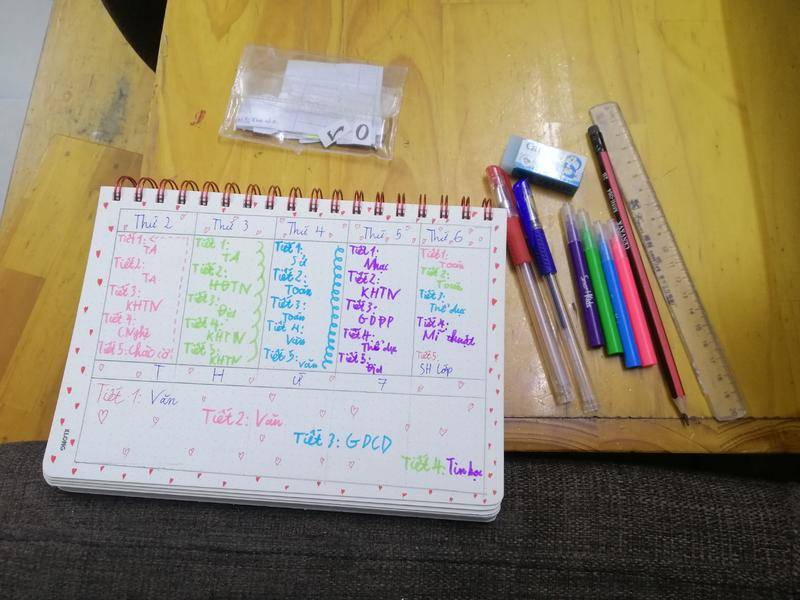 Thứ 2
Thứ 3
Thứ 4
Thứ 5
Thứ 6
Tiết 1:
TA
Tiết 2:
TA
Tiết 3:
KHTN
Tiết 4:
CNghệ
Tiết 5: Chào cờ
Tiết 1:
TA
Tiết 2:
HĐTN
Tiết 3:
Địa
Tiết 4:
KHTN
Tiết 5:
KHTN
Tiết 1:
Sử
Tiết 2:
Toán
Tiết 3:
Toán
Tiết 4:
Văn
Tiết 5: Văn
Tiết 1:
Nhạc
Tiết 2:
KHTN
Tiết 3:
GDĐP
Tiết 4:
Thể dục
Tiết 5:
Địa
Tiết 1:
Toán
Tiết 2:
Toán
Tiết 3:
Thể dục
Tiết 4:
Mĩ thuật
Tiết 5:
SH Lớp
T H Ứ 7
Tiết 1: Văn
Tiết 2: Văn
Tiết 3: GDCD
Tiết 4: Tin học
KLONG
SmartKids